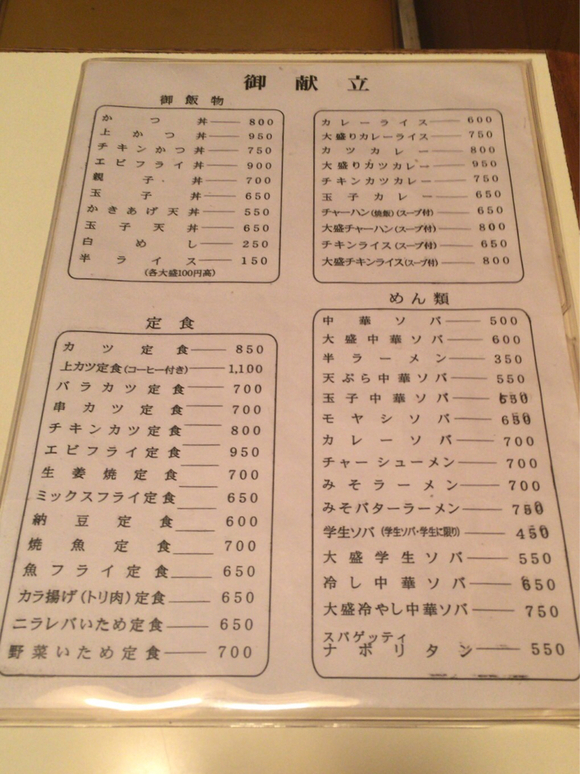 御献立
御飯物
かつ丼 800
上かつ丼 950
チキンかつ丼 750
エビフライ丼 900
親子丼 700
玉子丼 650
かきあげ天丼 550
玉子天丼 650
白めし 250
半ライス 150
(各大盛100円高)
カレーライス 600
大盛りカレーライス 750
カツカレー 800
大盛りカツカレー 950
チキンカツカレー 750
玉子カレー 650
チャーハン(焼飯)(スープ付) 650
大盛チャーハン(スープ付) 800
チキンライス(スープ付) 650
大盛チキンライス(スープ付) 800
定食
カツ定食 850
上カツ定食(コーヒー付き) 1,100
バラカツ定食 700
串カツ定食 700
チキンカツ定食 800
エビフライ定食 950
生姜焼定食 700
ミックスフライ定食 650
納豆定食 600
焼魚定食 700
魚フライ定食 650
カラ揚げ(トリ肉)定食 650
ニラレバいため定食 650
野菜いため定食 700
めん類
中華ソバ 500
大盛中華ソバ 600
半ラーメン 350
天ぷら中華ソバ 550
玉子中華ソバ
モヤシソバ
カレーソバ 700
チャーシューメン 700
みそラーメン 700
みそバターラーメン
学生ソバ(学生ソバ・学生に限り)
大盛学生ソバ 550
冷し中華ソバ 650
大盛冷やし中華ソバ 750
スパゲッティ
ナポリタン 550